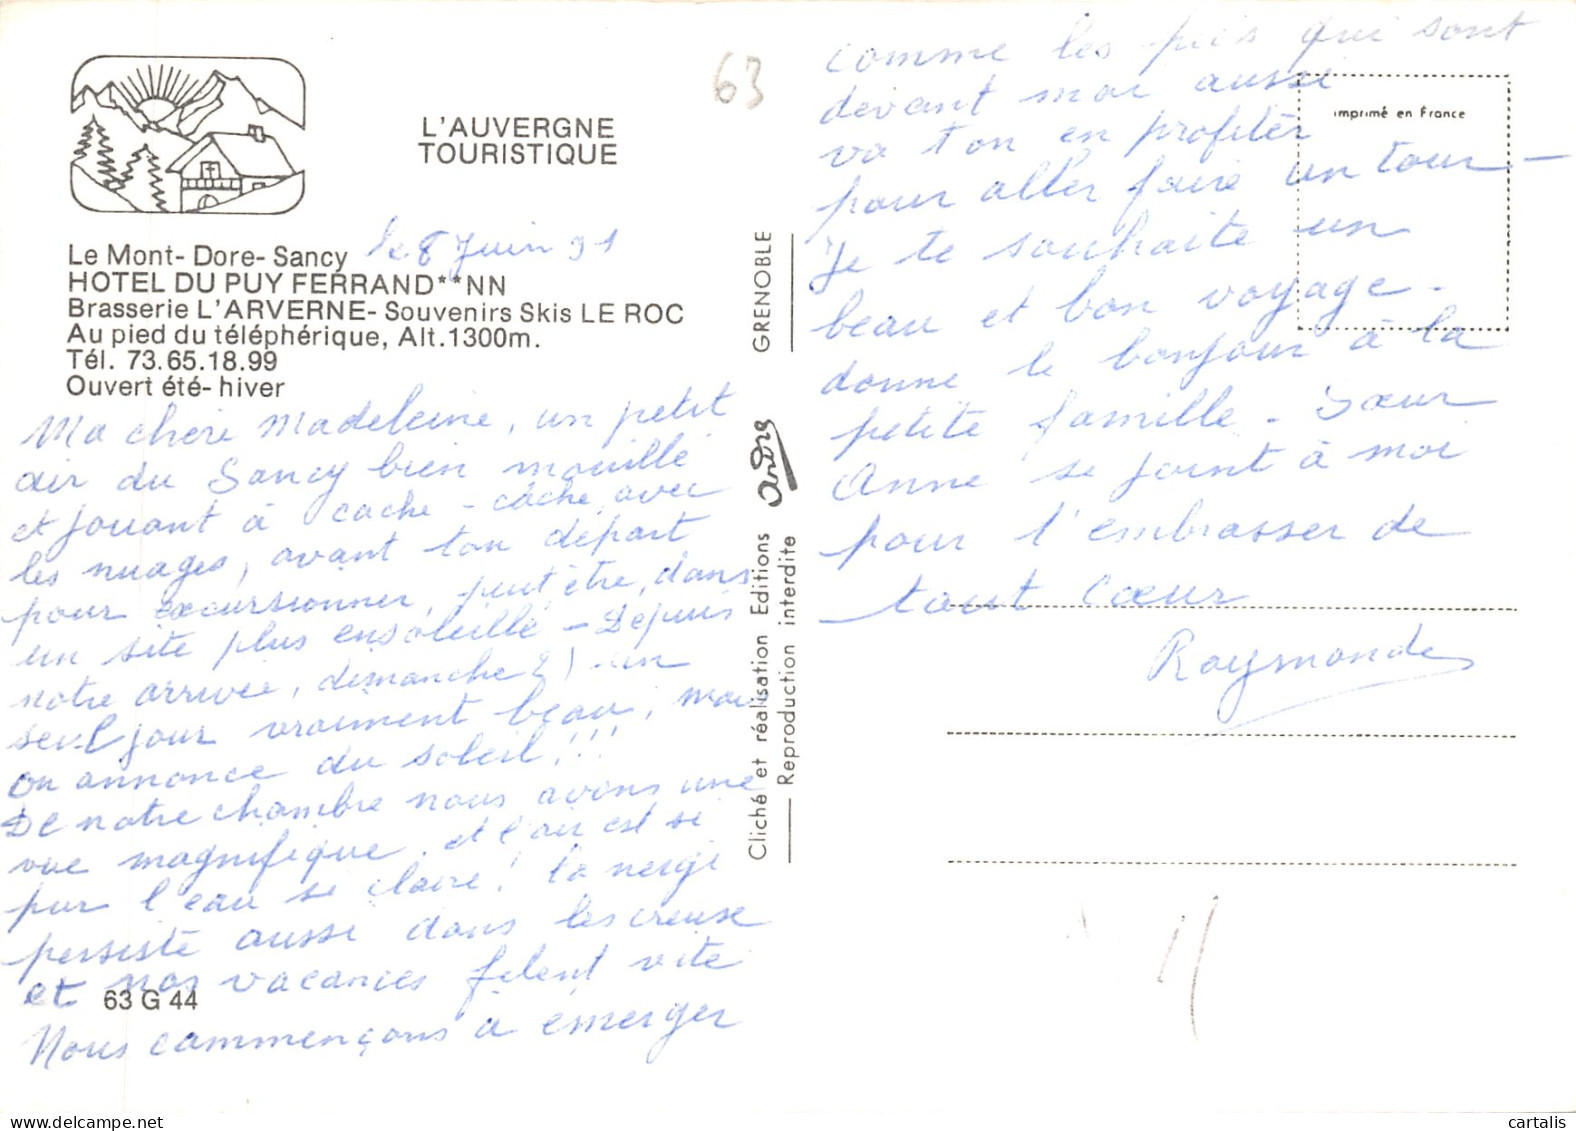 63
L'AUVERGNE
TOURISTIQUE
le 8 Juin 91
Le Mont- Dore- Sancy
HOTEL DU PUY FERRAND**NN
Brasserie L'ARVERNE- Souvenirs Skis LE ROC
Au pied du téléphérique, Alt.1300m.
Tél. 73.65.18.99
Ouvert été- hiver
Ma chère Madeleine, un petit
air du Sancy bien mouillé
et jouant à cache-cache avec
les nuages, avant ton départ
pour excursionner, peut être, dans
un site plus ensoleillé - Depuis
notre arrivée, dimanche 2, un
seul jour vraiment beau, mais
on annonce du soleil!!!
De notre chambre nous avons une
vue magnifique. et l'air est si
pur l'eau si claire! la neige
persiste aussi dans les creuse
et nos vacances filent vite
63 G 44
Nous commençons à émerger
GRENOBLE
André
Cliché et réalisation Editions
Reproduction interdite
imprimé en France
comme les pics qui sont
devant moi aussi
va t'on en profiter
pour aller faire un tour -
Je te souhaite un
beau et bon voyage -
donne le bonjour à la
petite famille - Sœur
Anne se joint à moi
pour t'embrasser de
tout cœur
Raymonde
cartalis